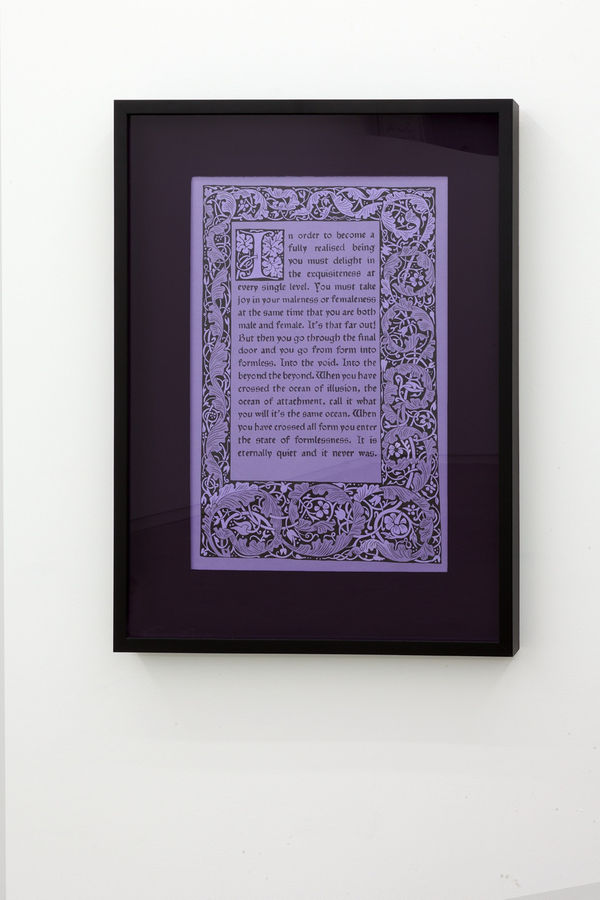 In order to become a
fully realised being
you must delight in
the exquisiteness at
every single level. You must take
joy in your maleness or femaleness
at the same time that you are both
male and female. It's that far out!
But then you go through the final
door and you go from form into
formless. Into the void. Into the
beyond the beyond. When you have
crossed the ocean of illusion, the
ocean of attachment, call it what
you will it's the same ocean. When
you have crossed all form you enter
the state of formlessness. It is
eternally quiet and it never was.